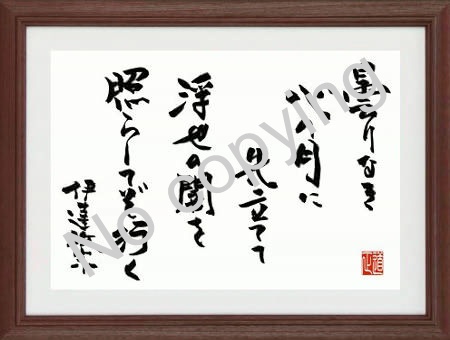 曇りなき
心の月に
先立てて
浮世の闇を
照らしてぞ行く
伊達政宗
No copying